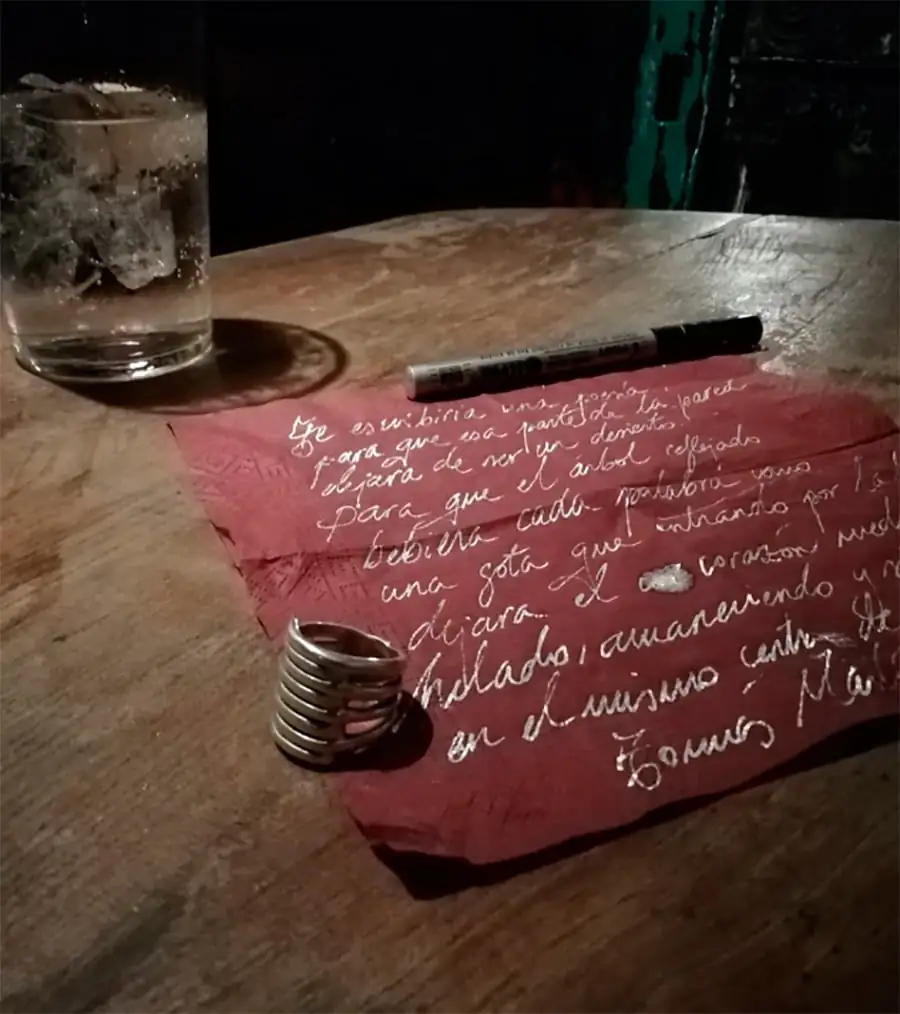 Te escribiría una poesía
para que esa parte de la pared
dejara de ser un desierto.
para que el árbol reflejado
bebiera cada palabra como
una gota que entrando por la
dejara el corazón
helado, amaneciendo y
en el mismo centro de
Tomás